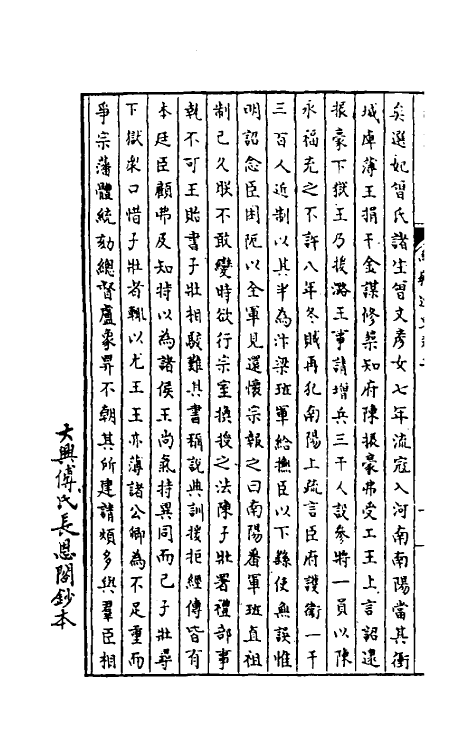 矣選妃曾氏諸生曾文彥女七年流寇入河南南陽當其衝
城庳薄王捐千金謀修築知府陳振豪弗受工王上言詔逮
振豪下獄王乃援潞王事請增兵三千人設參將一員以陳
永福充之不許八年冬賊再犯南陽上疏言臣府護衛一千
三百人近制以其半為汴梁班軍給撫臣以下縣使無誤惟
明詔念臣困阨以全軍見還懷宗報之曰南陽番軍班直祖
制已久朕不敢變時欲行宗室換授之法陳子壯署禮部事
執不可王貽書子壯相駁難其書稱說典訓援拒經傳皆有
本廷臣顧弗及知特以為諸侯王尚氣持異同而已子壯尋
下獄眾口惜子壯者輒以尤王王亦薄諸公卿為不足重而
爭宗藩體統劾總督盧象昇不朝其所建請煩多與羣臣相
大興傅氏長恩閣鈔本